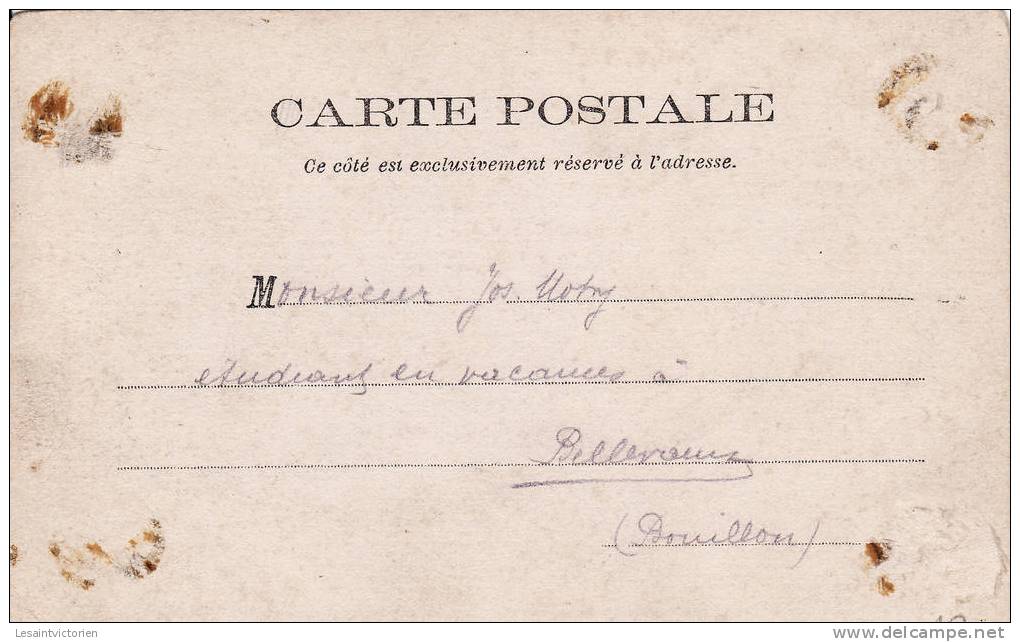 CARTE POSTALE
Ce côté est exclusivement réservé à l'adresse.
Monsieur Jos.
étudiant en vacances à
Bellevaux
(Bouillon)
Lesaintvictorien
delcampe.net